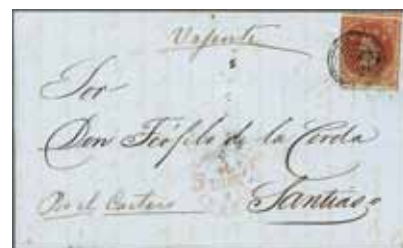 Urjente
Sor
Don Teófilo de la Cerda
Por el Cartero
Santiago